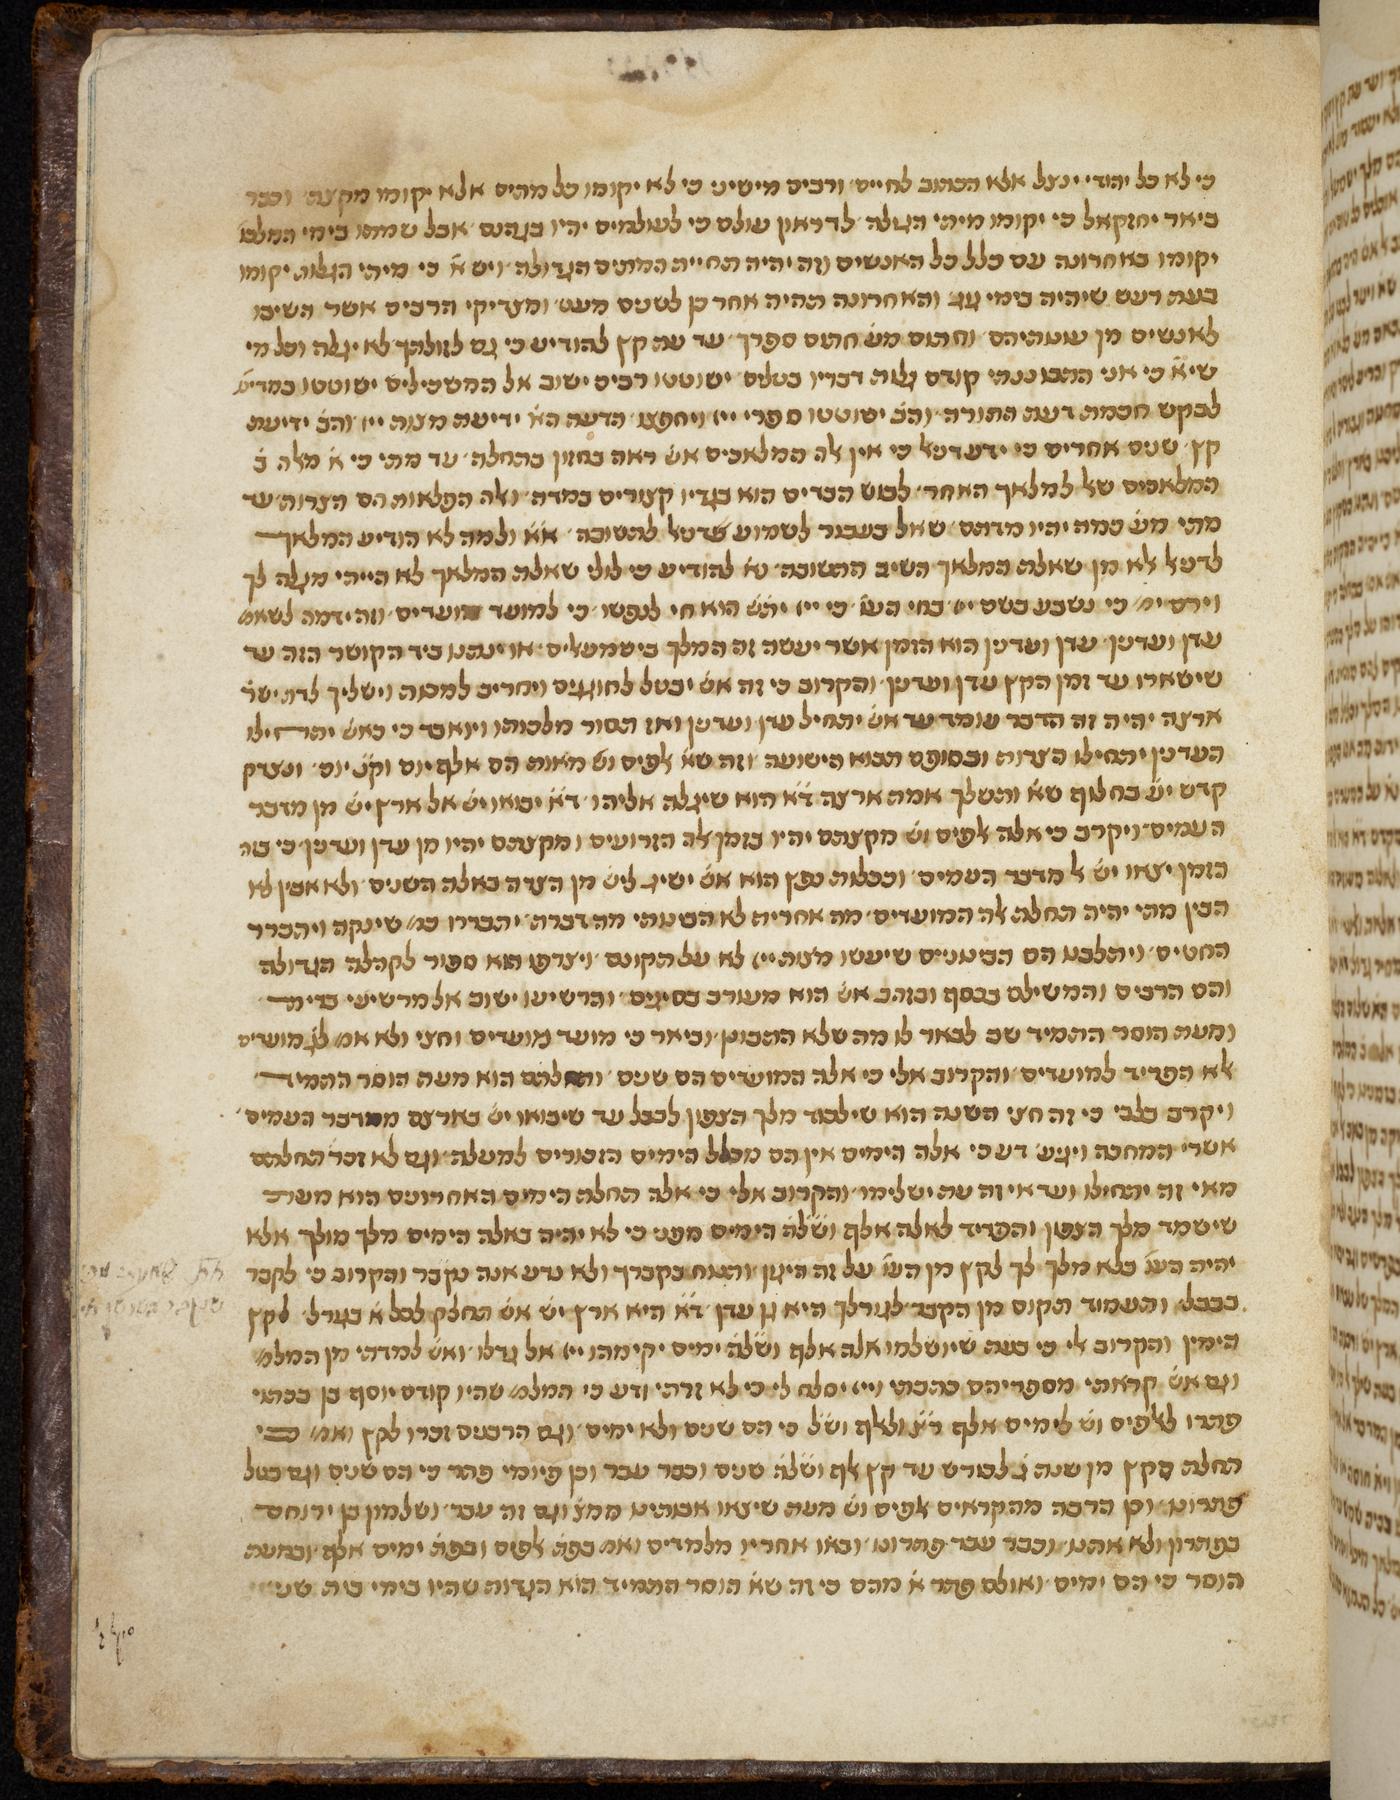 כי לא כל יהודי ינצל אלא הכתוב לחיים ורבים מישיני כי לא יקומו כל מתים אלא יקומו מקצת וכבר
ביאר יחזקאל כי יקומו מיתי הגולה לדראון עולם כי לעולמים יהיו בגהנם אבל שמתו בימי המלכו
יקומו באחרונה עם כלל כל האנשים וזה יהיה תחיית המתים הגדולה ויש א כי מיתי הגלות יקומו
בעת רעש שיהיה בימי גוג והאחרונה תהיה אחר כן לשנים מעט ומצדיקי הרבים אשר השיבו
לאנשים מן עונותיהם וחתום מש חתום ספרך עד עת קץ להודיע כי גם לזולתך לא יגלה וכל מי
שיא כי אני התבוננתי קודם גלות דבריו בטלים ישוטטו רבים ישוב אל המשכילים ישוטטו במדינ
לבקש חכמת דעת התורה והב ישוטטו ספרי ייי ויחפצו הדעת הא ידיעת מצות ייי והב ידיעת
קץ שנים אחרים כי ידע דניאל כי אין אלה המלאכים אש ראה בחזון בתחלה עד מתי כי א מאלה ב
המלאכים שאל למלאך האחר לבוש הבדים הוא בגדיו קצורים במדה ואלה הפלאות הם הצרות עד
מתי מש כמה יהיו מדתם שאל בעבור לשמוע דניאל התשובה אא ולמה לא הודיע המלאך
לדניאל לא מן שאלת המלאך השיב התשובה נא להודיע כי לולי שאלת המלאך לא הייתי מגלה לך
וירם ימ כי נשבע בשם יי בחי העו כי ייי יתש הוא חי לנפשו כי למועד מועדים וזה ידמה לשאמ
עדן ועדנין עדן ועדנין הוא הזמן אשר יעשה זה המלך בישמעאלים או ינתנו ביד הקושר הזה עד
שישארו עד זמן הקץ עדן ועדנין והקרוב כי זה אש יבטל לחוגגים ויחריב למכות וישליך לדת ישר
ארצה יהיה זה הדבר עומד עד אש יתחיל עדן ועדנין ואז תסור מלכותו ויאבד כי כאש יתחילו
העדנין יתחילו הצרות ובסופם תבוא הישועה וזה שא אלפים וש מאות הם אלף יום וקנ יום ונצדק
קדש יש בחלוף שא ותשלך אמת ארצה דא הוא שיגלה אליהו דא יבואו יש אל ארץ יש מן מדבר
העמים ויקרב כי אלה אלפים וש מקצתם יהיו בזמן אלה הזרועים ומקצתם יהיו מן עדן ועדנין כי בזה
הזמן יצאו יש אל מדבר העמים וככלות נפץ הוא אש ישיג ליש מן הצרה באלה השנים ולא אבין לא
הבין מתי יהיה תחלת אלה המועדים מה אחרית לא הבינותי מה דברת יתבררו כמ שינקה ויתברר
החטים ויתלבנו הם הבינוניים שיעשו מצות ייי לא על תקונם ויצרפו הוא ספור לקהלה הגדולה
והם הרבים והמשילם בכסף ובזהב אש הוא מעורב בסיגים והרשיעו ישוב אל מרשיעי ברית
ומעת הוסר התמיד שב לבאר לו מה שלא התבונן וביאר כי מועד מועדים וחצי ולא אמ לג מועדים
אלא הפריד למועדים והקרוב אלי כי אלה המועדים הם שנים ותחלתם הוא מעת הוסר התמיד
ויקרב בלבי כי זה חצי השנה הוא שילכוד מלך הצפון לבבל עד שיבואו יש בארצם ממדבר העמים
אשרי המחכה ויגיע דע כי אלה הימים אין הם מכלל הימים הזכורים למעלה וגם לא זכר תחלתם
מאי זה יתחילו ועד אי זה עת ישלימו והקרוב אלי כי אלה תחלת הימים האחרונים הוא מעת
שישמד מלך הצפון והפריד לאלה אלף ושלה הימים מפני כי לא יהיה באלה הימים מלך מולך אלא
יהיה העו בלא מלך לך לקץ מן העו על זה היגון ותנוח בקברך ולא נדע אנה נקבר והקרוב כי לקבר
בבבל ותעמוד תקום מן הקבר לגורלך היא גן עדן דא היא ארץ יש אש תחלק לכל א בגורל לקץ
הימין והקרוב לי כי בעת שיושלמו אלה אלף ושלה ימים יקימהו ייי אל גדלו ואש למדתי מן המלמ
וגם אש קראתי מספריהם כתבתי וייי יסלח לי כי לא זדתי ודע כי המלמ שהיו קודם יוסף בן בכתוי
פתרו לאלפים וש לימים אלף רצ ולאלף ושל כי הם שנים ולא ימים וגם הרבנים זכרו לקץ ואמ כי
תחלת הקץ מן שנה ג לכורש עד קץ אלף ושלה שנים וכבר עבר וכן פיומי פתר כי הם שנים וגם בטל
פתרונו וכן הרבה מהקראים אלפים וש מעת שיצאו אבותינו ממצ וגם זה עבר ושלמון בן ירוחם
בפתרון ולא אתנו וכבר עבר פתרונו ובאו אחריו מלמדים ואמ בפת אלפים ובפת ימים אלף ובמעת
הוסר כי הם ימים ואולם פתר א מהם כי זה שא הוסר התמיד הוא הגדות שהיו בימי בית שני